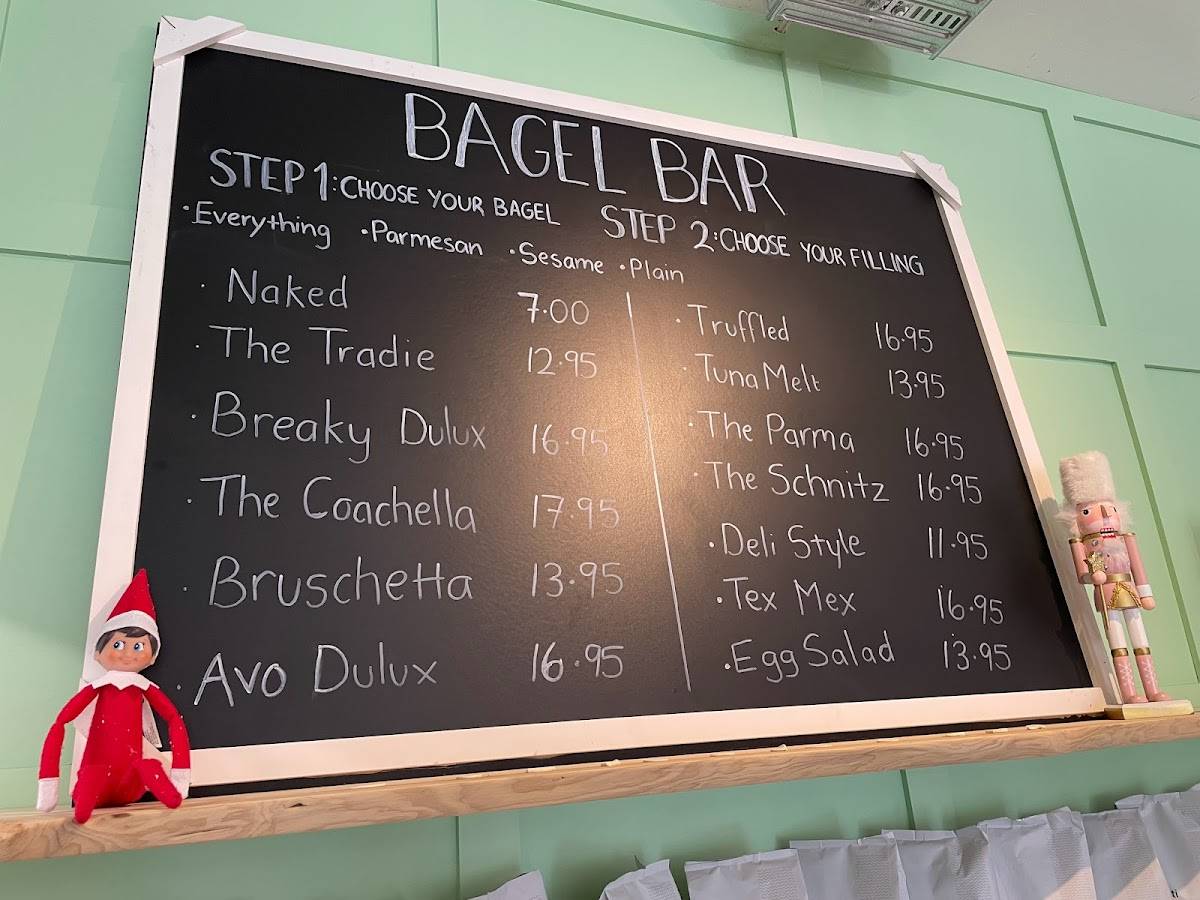 BAGEL BAR
STEP 1: CHOOSE YOUR BAGEL
• Everything • Parmesan • Sesame • Plain
STEP 2: CHOOSE YOUR FILLING
• Naked 7.00
• The Tradie 12.95
• Breaky Dulux 16.95
• The Coachella 17.95
• Bruschetta 13.95
• Avo Dulux 16.95
• Truffled 16.95
• Tuna Melt 13.95
• The Parma 16.95
• The Schnitz 16.95
• Deli Style 11.95
• Tex Mex 16.95
• Egg Salad 13.95